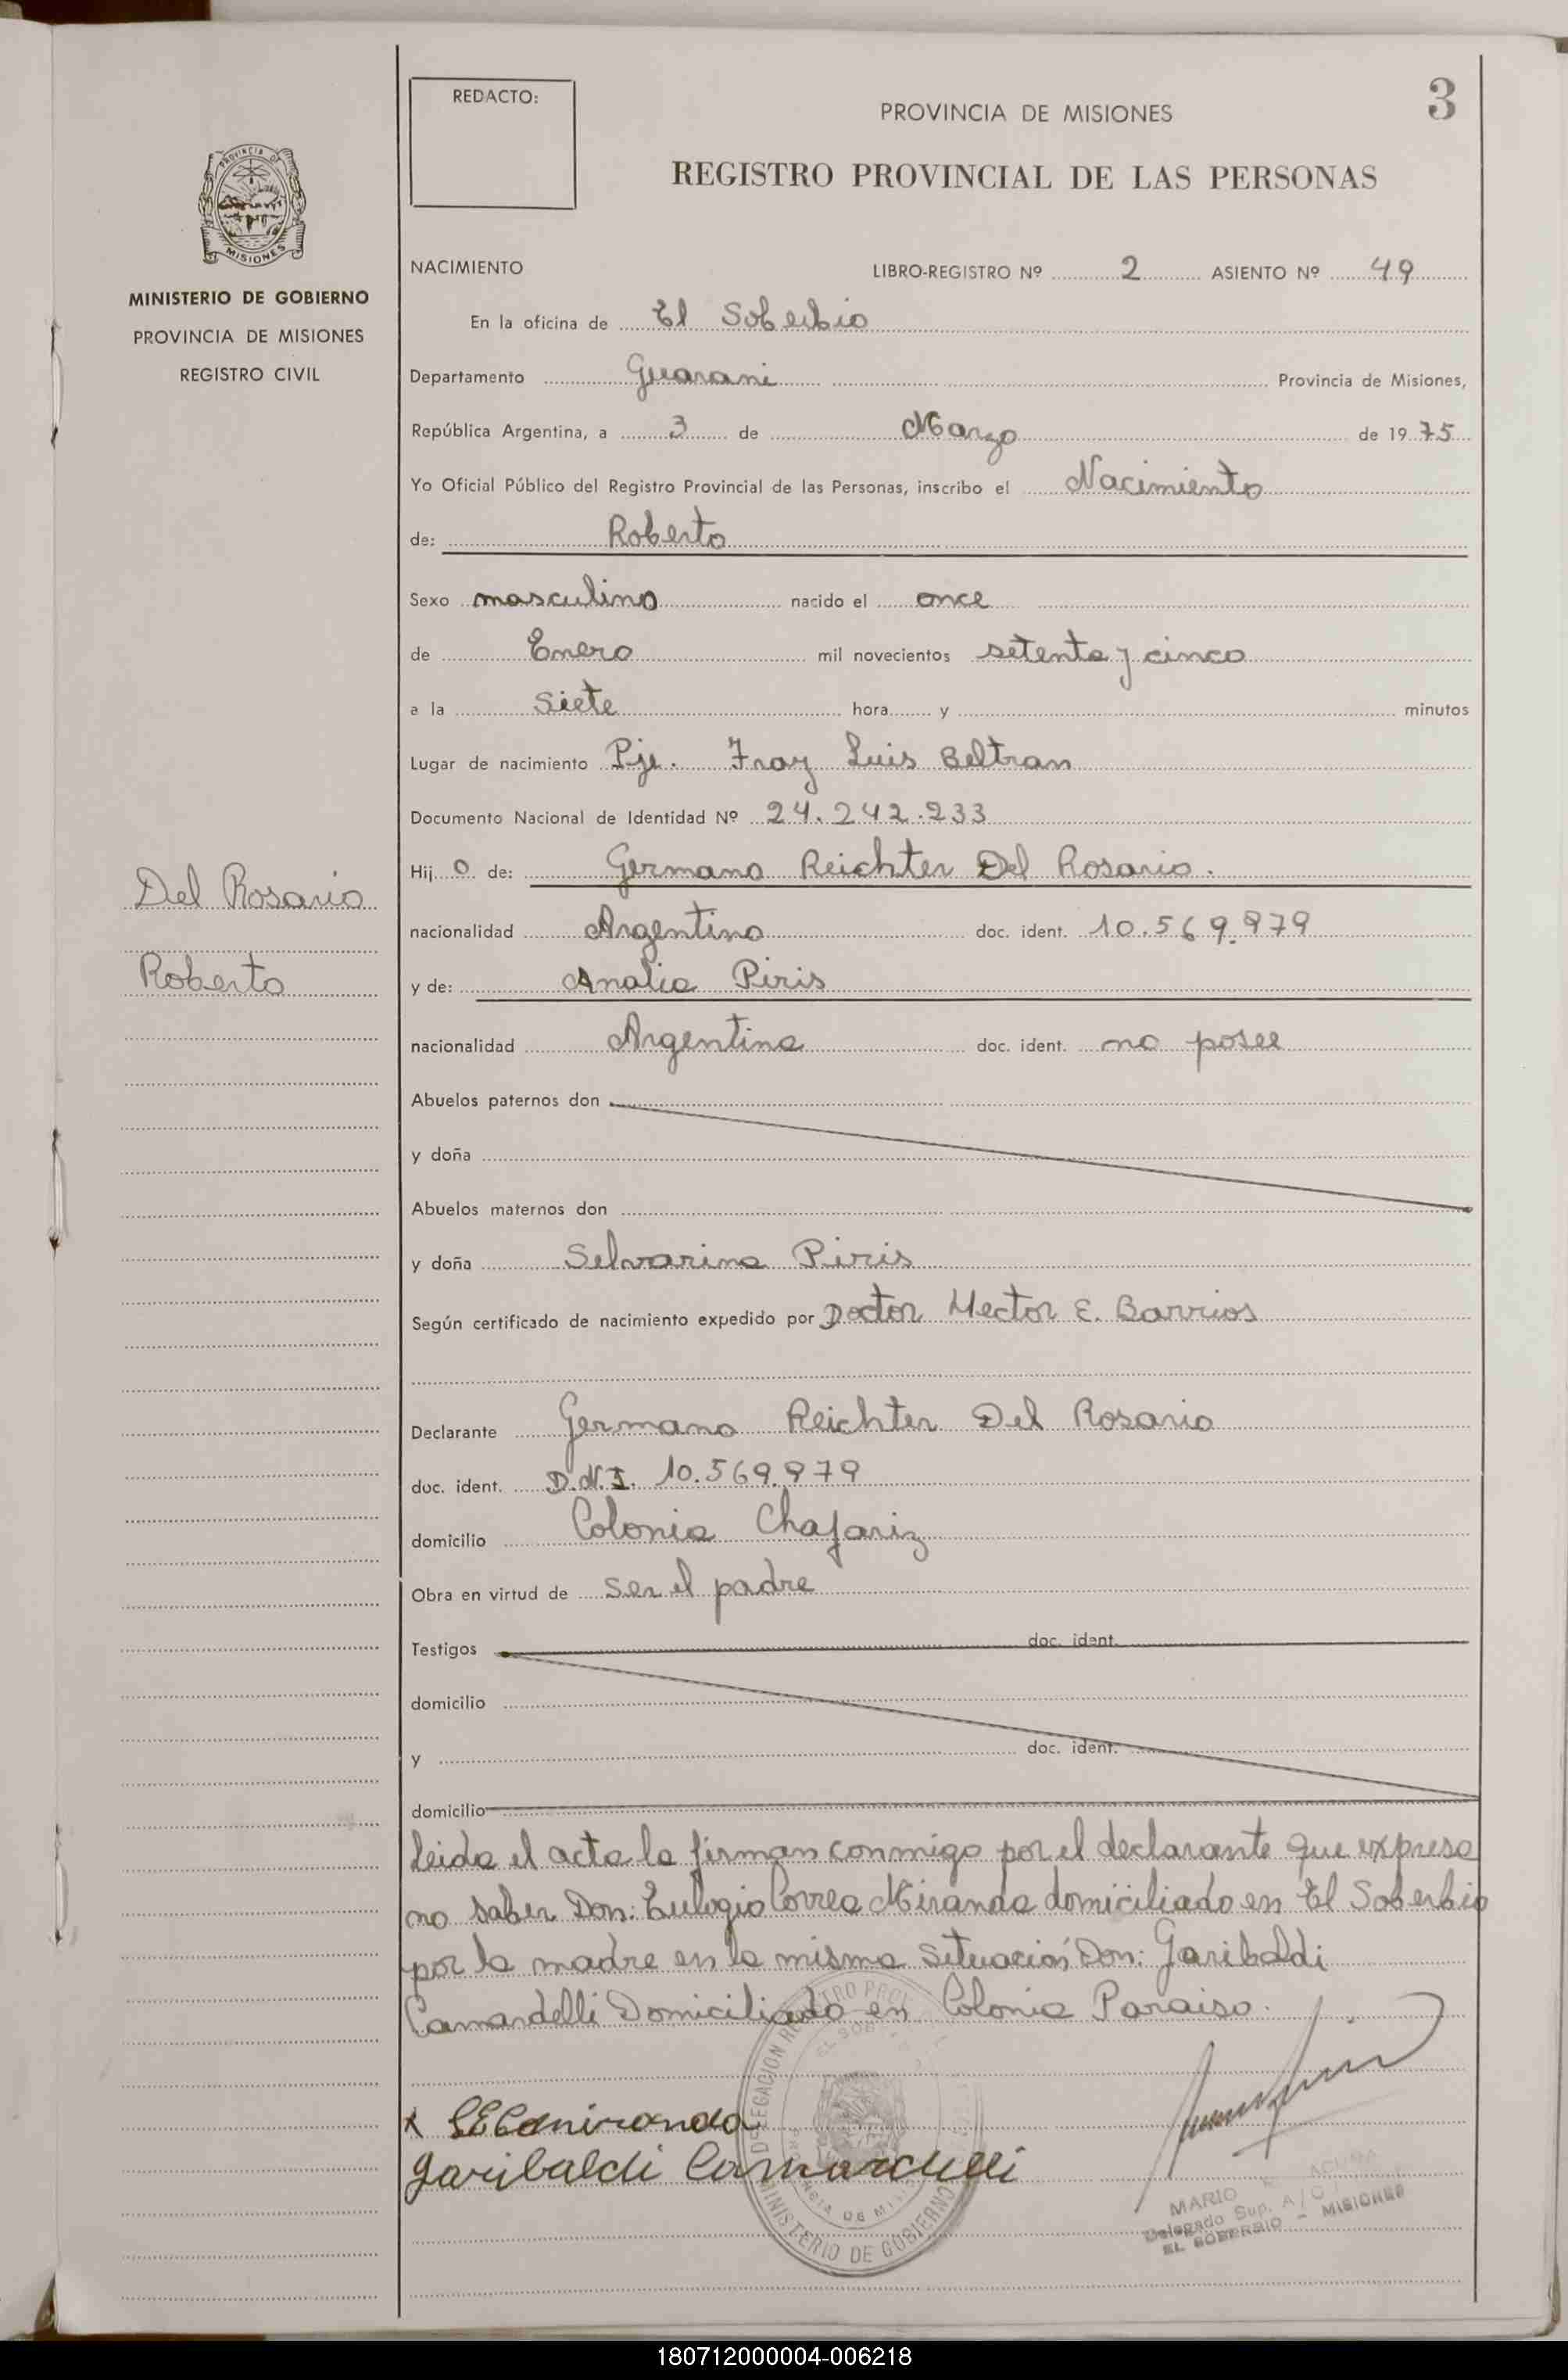 3
REDACTO:
PROVINCIA DE MISIONES
REGISTRO PROVINCIAL DE LAS PERSONAS
PROVINCIA DE
MISIONES
MINISTERIO DE GOBIERNO
PROVINCIA DE MISIONES
REGISTRO CIVIL
NACIMIENTO LIBRO-REGISTRO Nº 2 ASIENTO Nº 49
En la oficina de El Soberbio
Departamento Guarani Provincia de Misiones,
República Argentina, a 3 de Marzo de 1975
Yo Oficial Público del Registro Provincial de las Personas, inscribo el Nacimiento
de: Roberto
Sexo masculino nacido el once
de Enero mil novecientos setenta y cinco
a la siete hora y minutos
Lugar de nacimiento Pje. Fray Luis Beltran
Documento Nacional de Identidad Nº 24.242.233
Hij o de: Germano Reichter Del Rosario.
Del Rosario
nacionalidad Argentino doc. ident. 10.569.979
Roberto
y de: Analia Piris
nacionalidad Argentina doc. ident. no posee
Abuelos paternos don
y doña
Abuelos maternos don
y doña Selvarina Piris
Según certificado de nacimiento expedido por Doctor Hector E. Barrios
Declarante Germano Reichter Del Rosario
doc. ident. D.N.I. 10.569.979
domicilio Colonia Chafariz
Obra en virtud de ser el padre
Testigos doc. ident.
domicilio
y doc. ident.
domicilio
Leida el acta la firman conmigo por el declarante que expresa
no saber Don: Eulogio Correa Miranda domiciliado en El Soberbio
por la madre en la misma situación Don: Garibaldi
Camardelli Domiciliado en Colonia Paraiso.
Garibaldi Camardelli
DELEGACION
MINISTERIO DE GOBIERNO
MARIO
Delegado Sup. A/C
EL SOBERBIO - MISIONES
180712000004-006218